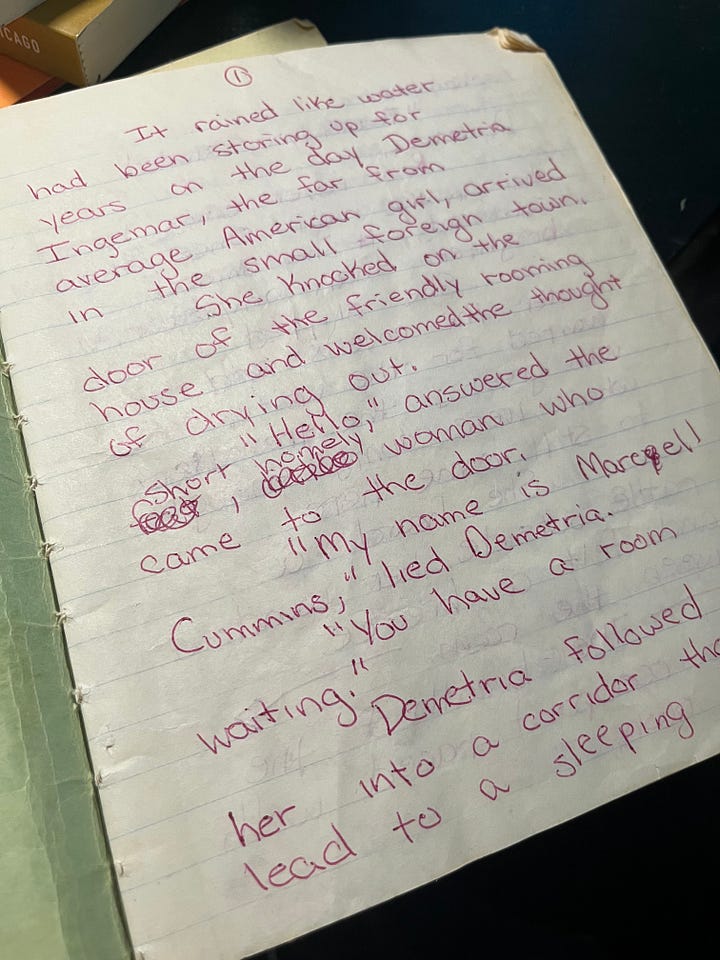 ICAGO
1
It rained like water
had been storing up for
years on the day Demetria
Ingemar, the far from
average American girl, arrived
in the small foreign town.
She knocked on the
door of the friendly rooming
house and welcomed the thought
of drying out.
"Hello," answered the
short, homely woman who
came to the door.
"My name is Marcell
Cummins," lied Demetria.
"You have a room
waiting."
Demetria followed
her into a corridor tha
lead to a sleeping